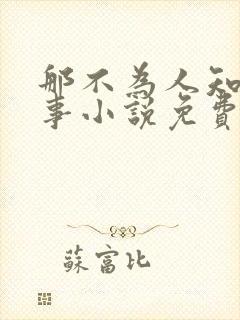 那不為人知
事小說免費
蘇富比